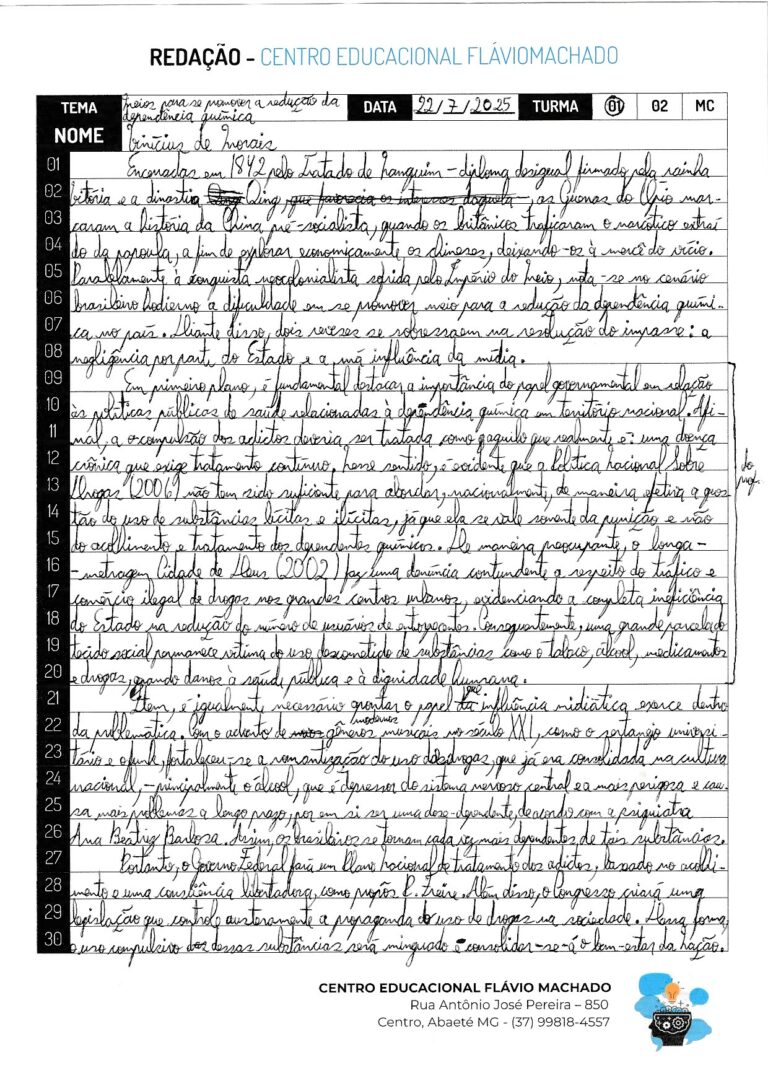 REDAÇÃO - CENTRO EDUCACIONAL FLÁVIOMACHADO
TEMA
Meios para se promover a redução da
dependência química
DATA
22/7/2025
TURMA
01
02
MC
NOME
Vinícius de Morais
01 Encerradas em 1842 pelo Tratado de Nanquim - diploma desigual firmado pela rainha
02 Vitória e a dinastia Qing, que favorecia os interesses daquela -, as Guerras do Ópio mar-
03 caram a história da China pré-socialista, quando os britânicos traficaram o narcótico extraí
04 do da papoula, a fim de explorar economicamente os chineses, deixando-os à mercê do vício.
05 Paralelamente à conquista neocolonialista sofrida pelo Império do Meio, nota-se no cenário
06 brasileiro hodierno a dificuldade em se promover meio para a redução da dependência quími-
07 ca no país. Diante disso, dois reveses se sobressaem na resolução do impasse: a
08 negligência por parte do Estado e a má influência da mídia.
09 Em primeiro plano, é fundamental destacar a importância do papel governamental em relação
10 às políticas públicas de saúde relacionadas à dependência química em território nacional. Afi-
11 nal, a compulsão dos adictos deveria ser tratada como aquilo que realmente é: uma doença
12 crônica que exige tratamento contínuo. Nesse sentido, é evidente que a Política Nacional Sobre
13 Drogas (2006) não tem sido suficiente para abordar, nacionalmente, de maneira efetiva a ques
14 tão do uso de substâncias lícitas e ilícitas, já que ela se vale somente da punição e não
15 do acolhimento e tratamento dos dependentes químicos. De maneira preocupante, o longa-
16 -metragem Cidade de Deus (2002) faz uma denúncia contundente a respeito do tráfico e
17 comércio ilegal de drogas nos grandes centros urbanos, evidenciando a completa ineficiência
18 do Estado na redução do número de usuários de entorpecentes. Consequentemente, uma grande parcela do
19 tecido social permanece vítima do uso descometido de substâncias como o tabaco, álcool, medicamentos
20 e drogas, gerando danos à saúde pública e à dignidade humana.
do prof.
21 Item, é igualmente necessário apontar o papel que influência midiática exerce dentro
22 da problemática. Com o advento de modernos gêneros musicais no século XXI, como o sertanejo universi-
23 tário e o funk, fortaleceu-se a romantização do uso de drogas, que já era consolidada na cultura
24 nacional, - principalmente o álcool, que é depressor do sistema nervoso central e a mais perigosa e cau-
25 sa mais problemas a longo prazo, por em si ser uma dose-dependente, de acordo com a psiquiatra
26 Ana Beatriz Barbosa. Assim, os brasileiros se tornam cada vez mais dependentes de tais substâncias.
27 Portanto, o Governo Federal fará um Plano Nacional de tratamento dos adictos, baseado no acolhi-
28 mento e uma consciência libertadora, como propôs P. Freire. Além disso, o Congresso criará uma
29 legislação que controle austeramente a propaganda do uso de drogas na sociedade. Dessa forma,
30 o uso compulsivo dessas substâncias será minguado e consolidar-se-á o bem-estar da Nação.
CENTRO EDUCACIONAL FLÁVIO MACHADO
Rua Antônio José Pereira – 850
Centro, Abaeté MG - (37) 99818-4557